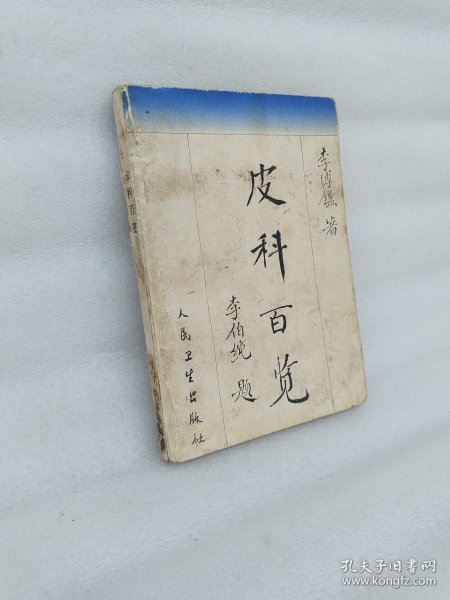 李博鑑 著
皮科百览
李伯纯 题
人民卫生出版社
皮科百览
孔夫子旧书网
www.kongfz.com